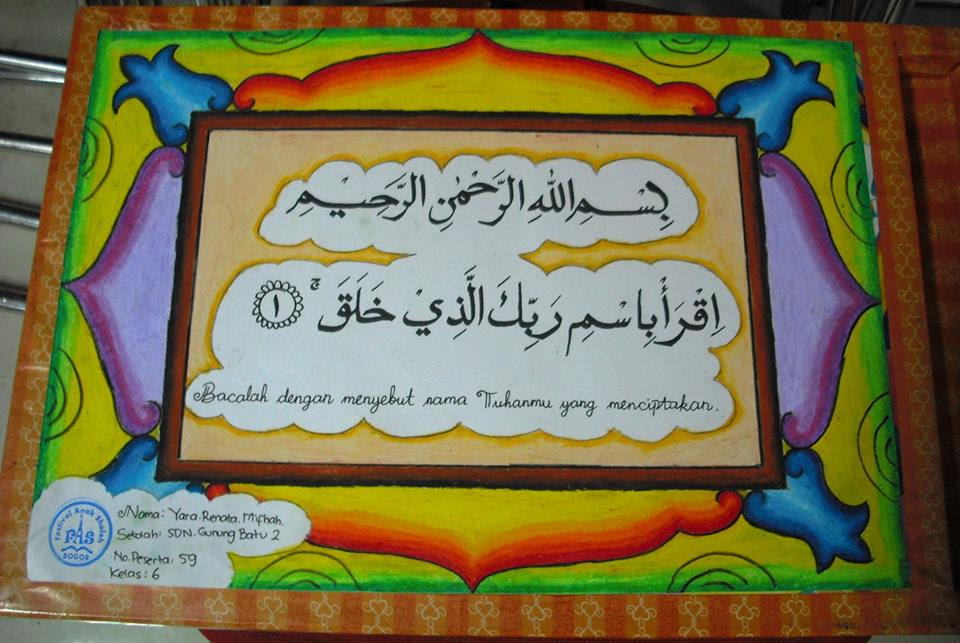 بِسْمِ اللهِ الرَّحْمٰنِ الرَّحِيْمِ
اِقْرَأْ بِاسْمِ رَبِّكَ الَّذِيْ خَلَقَ ۚ ١
Bacalah dengan menyebut nama Tuhanmu yang menciptakan.
Festival Anak Sholeh
FAS
BOGOR
Nama: Yara. Renata. Miftah.
Sekolah: SDN. Gunung Batu 2
No. Peserta: 59
Kelas: 6